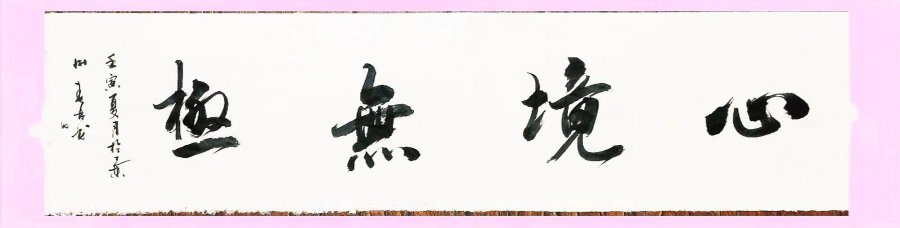 心境無極
壬寅夏月於